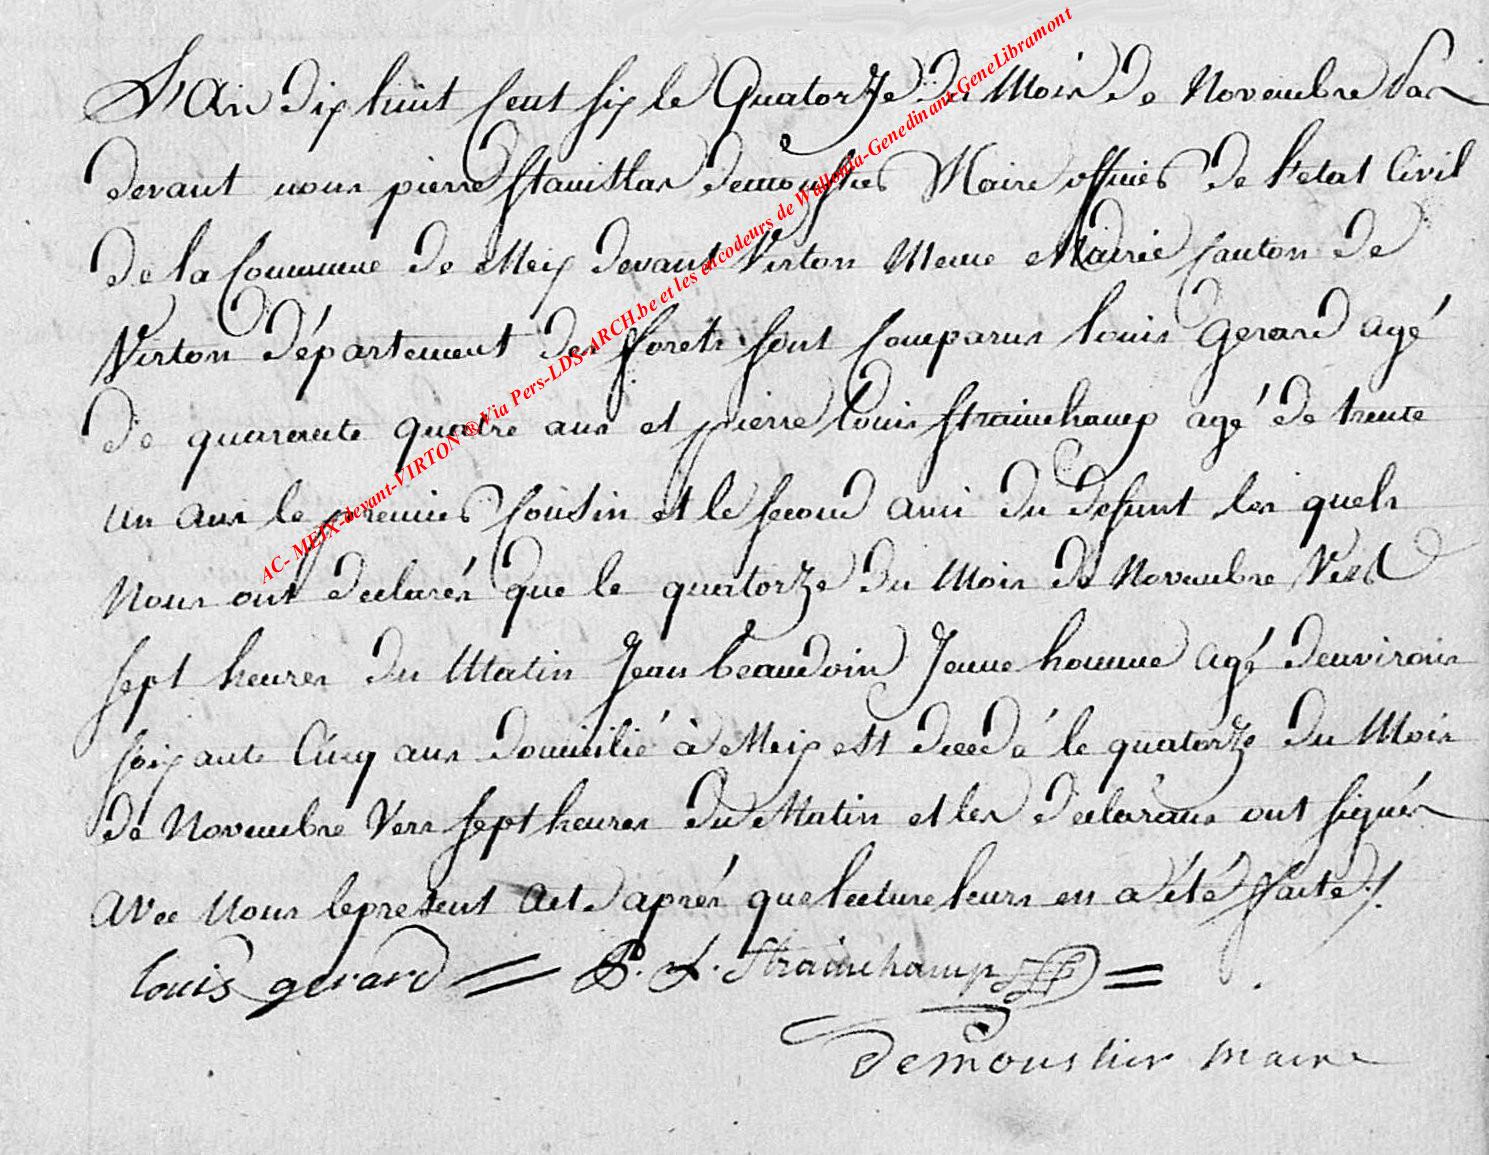 L'An dix huit cent six le Quatorze du Mois de Novembre Par
devant nous pierre stanislas demoustier Maire officier de l'etat Civil
de la Commune de Meix devant Virton Meme Mairie Canton de
Virton département des forets sont Comparus louis gerard agé
de quarante quatre ans et pierre louis strainchamp agé de trente
un ans le premier Cousin et le second ami du defunt les quels
Nous ont declarés que le quatorze du Mois de Novembre Vers
sept heures du Matin Jean beaudoin Jeune homme agé denvirons
soixante Cinq ans domicilié à Meix est decedé le quatorze du Mois
de Novembre Vers sept heures du Matin et les déclarans ont signés
avec Nous le present Acte aprés que lecture leurs en a été faite ./.
louis gerard = P. L. Strainchamp =
demoustier maire
AC- MEIX-devant-VIRTON ® Via Pers-LDS-ARCH.be et les encodeurs de Wallonia-Genedinant-GeneLibramont